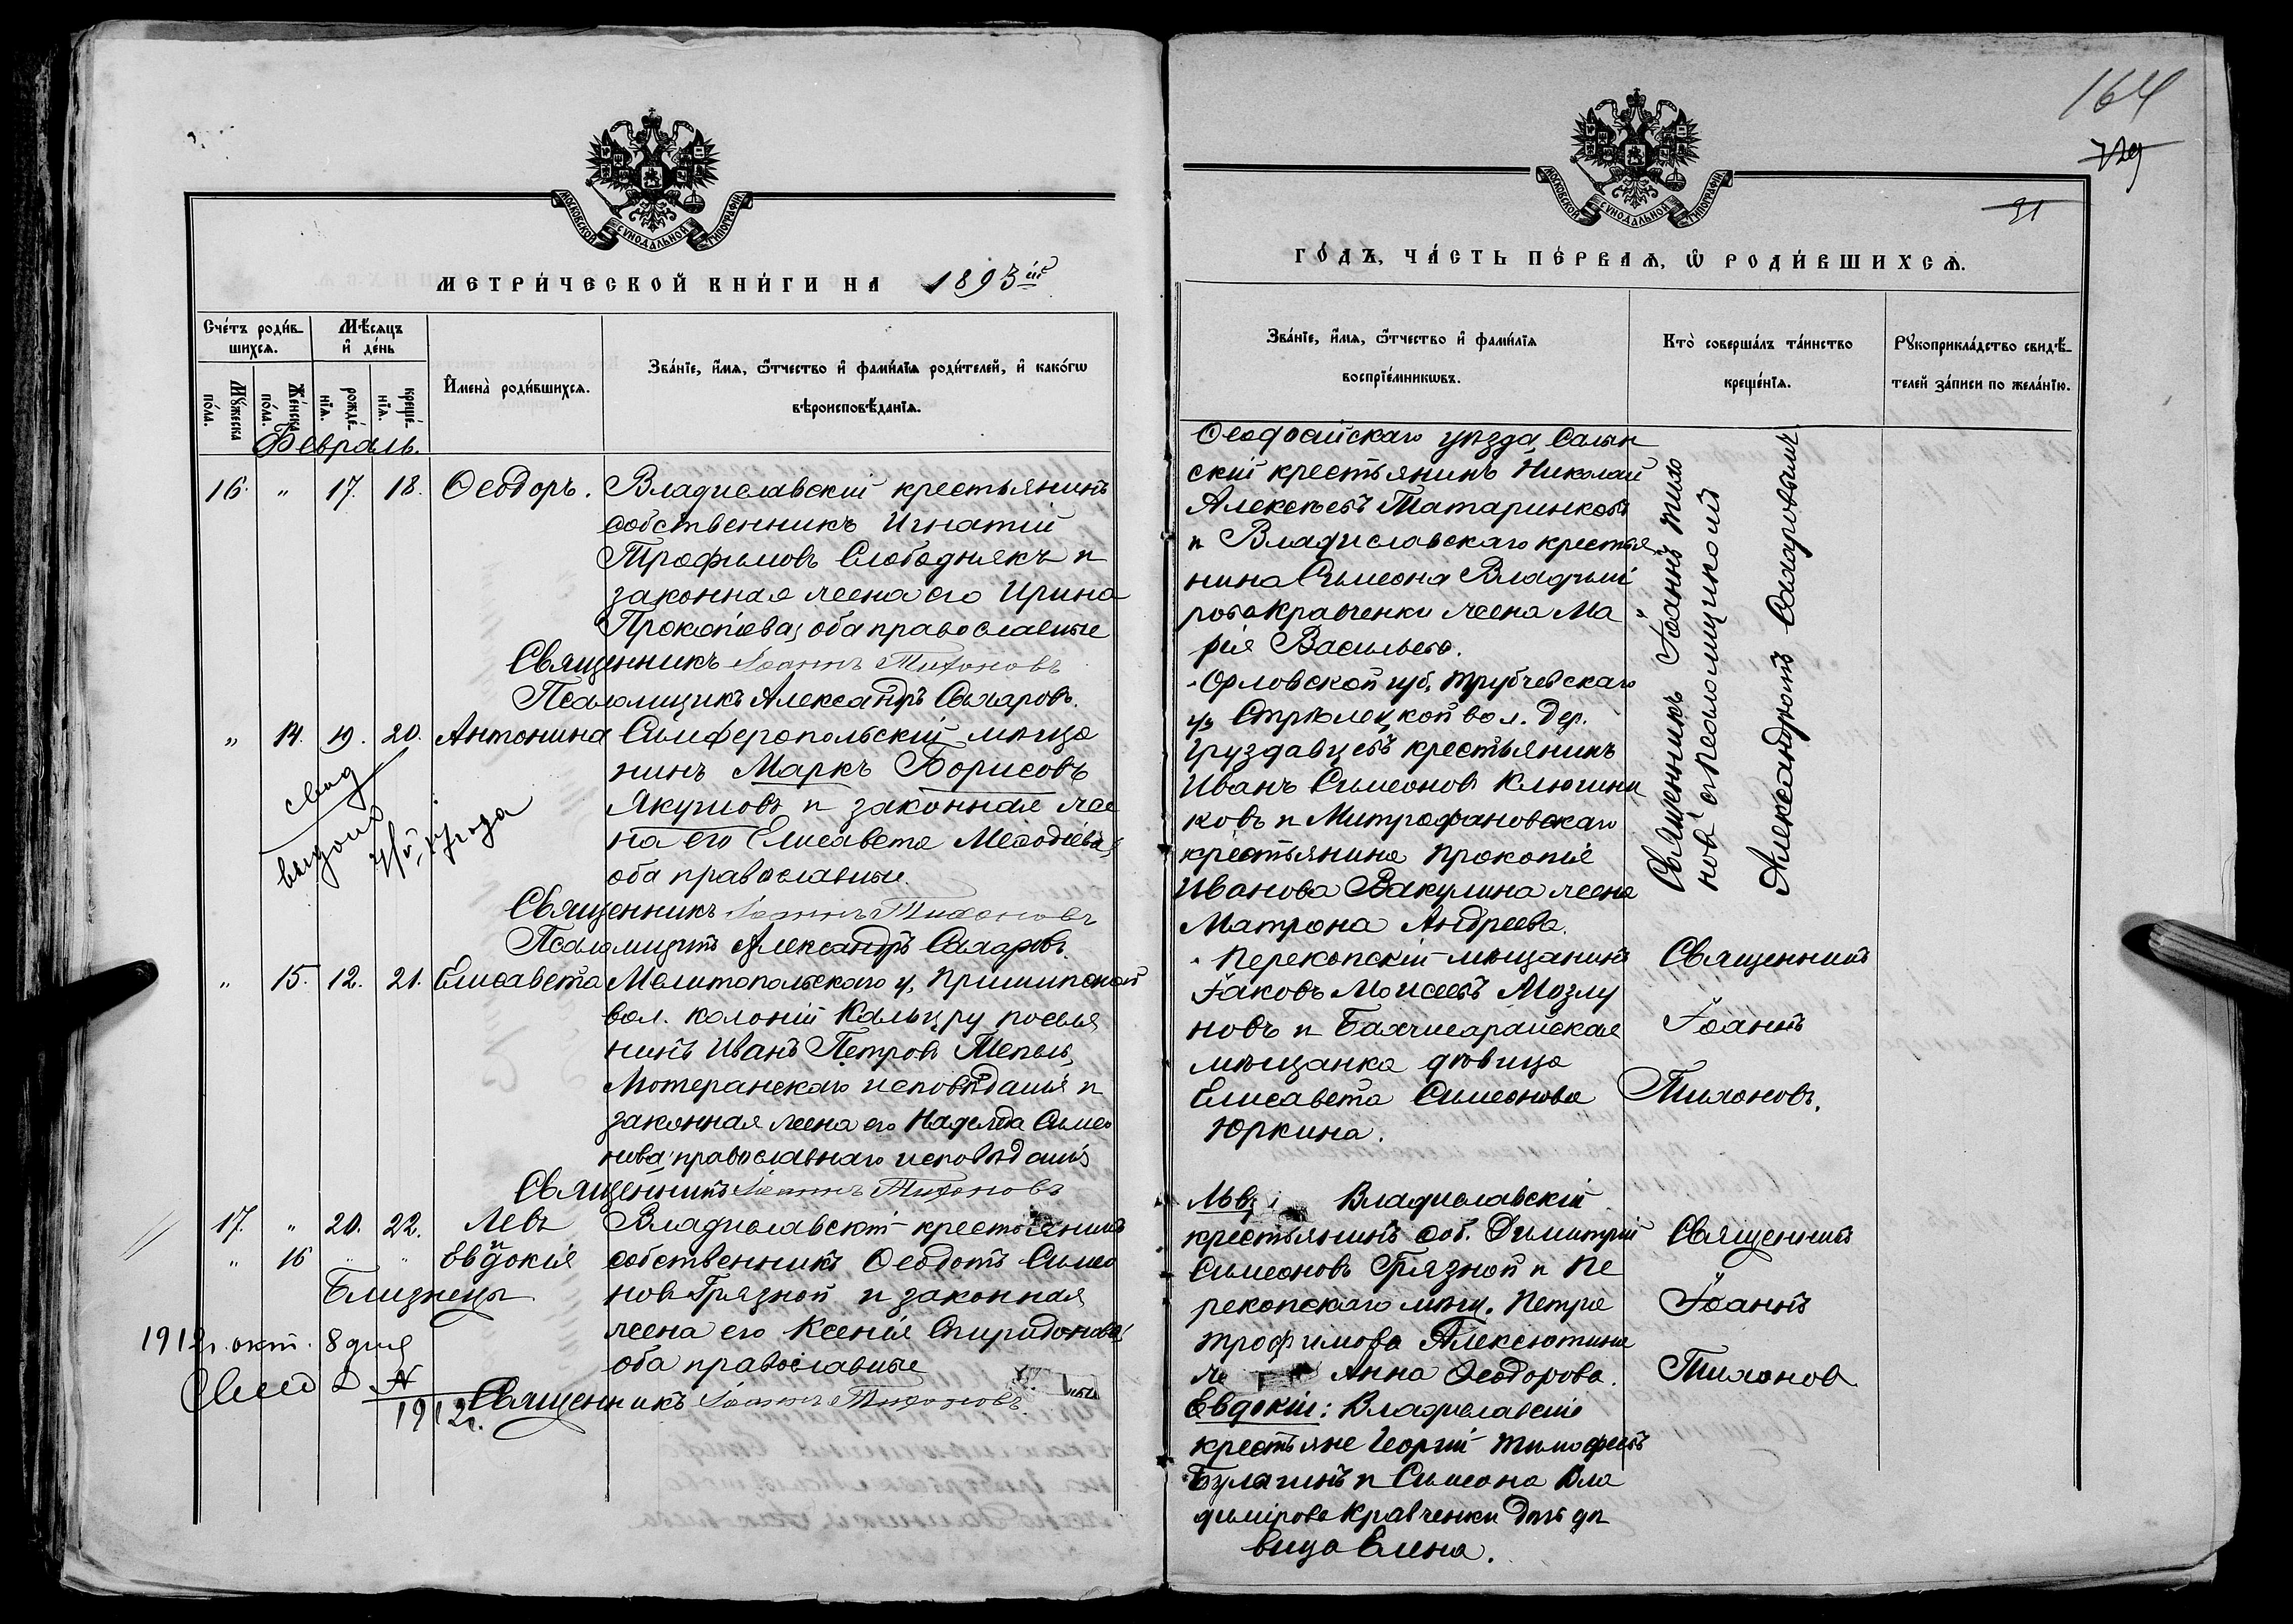 164
729
31
МОСКОВСКОЙ СУНОДАЛЬНОЙ ТИПОГРАФІИ
МЕТРИ́ЧЕСКОЙ КНИ́ГИ НА 1893ій
Сче́тъ роди́в-
шихсѧ.
Мꙋ́жеска
по́ла.
Же́нска
по́ла.
Мѣ́сѧцъ
и҆ де́нь
рожде́-
нїѧ.
креще́-
нїѧ.
И҆мена̀ роди́вшихсѧ.
Зва́нїе, и҆́мѧ, ѻ҆́тчество и҆ фами́лїѧ роди́телей, и҆ како́гѡ
вѣроисповѣ́данїѧ.
Февраль.
16. " 17. 18. Ѳеодоръ. Владиславскій крестьянинъ
собственникъ Игнатій
Трофимовъ Слободнякъ и
законная жена его Ирина
Прокопіева, оба православные
Священникъ Іоаннъ Тихоновъ
Псаломщикъ Александръ Сахаровъ.
" 14. 19. 20. Антонина Симферопольскій мѣща
нинъ Маркъ Борисовъ
Якушовъ и законная же
на его Елисавета Меѳодіева,
оба православные.
Священникъ Іоаннъ Тихоновъ
Псаломщикъ Александръ Сахаровъ.
свид
выдано
" 15. 12. 21. Елисавета Мелитопольскаго у. Пришипской
вол. колоніи Кальцру посел
нинъ Иванъ Петровъ Тепель,
Лютеранскаго исповѣданія и
законная жена его Надежда Симео
нова православнаго исповѣданія
Священникъ Іоаннъ Тихоновъ
17. " 20. 22. Левъ Владиславскій крестьянинъ
и
" 16 " " Евдокія собственникъ Ѳеодотъ Симео
Близнецы новъ Грязной и законная
жена его Ксенія Спиридонова,
оба православные
1912г. окт. 8 дня
1912г.
Священникъ Іоаннъ Тихоновъ
МОСКОВСКОЙ СУНОДАЛЬНОЙ ТИПОГРАФІИ
ГО́ДЪ, ЧА́СТЬ ПЕ́РВАѦ, Ѡ҆ РОДИ́ВШИХСѦ.
Зва́нїе, и҆́мѧ, ѻ҆́тчество и҆ фами́лїѧ
воспрїе́мникѡвъ.
Кто̀ соверша́лъ та́инство
креще́нїѧ.
Рꙋкоприкла́дство свидѣ́-
телей за́писи по жела́нїю.
Ѳеодосійскаго уѣзда, Салын
скій крестьянинъ Николай
Алексѣевъ Татаринковъ
и Владиславскаго крестья
нина Симеона Владимі
рова Кравченки жена Ма
рія Васильева.
Орловской губ. Трубчевскаго
у. Стрѣлецкой вол. дер.
Груздавцевъ крестьянинъ
Иванъ Симеоновъ Ключни
ковъ и Митрофановскаго
крестьянина Прокопія
Иванова Вакулина жена
Матрона Андреева.
Священникъ Іоаннъ Тихо
новъ съ псаломщикомъ
Александромъ Сахаровымъ
Перекопскій мѣщанинъ
Іаковъ Моисеевъ Мозлу
новъ и Бахчисарайская
мѣщанка дѣвица
Елисавета Симеонова
Юркина.
Священникъ
Іоаннъ
Тихоновъ.
Льва: Владиславскій
крестьянинъ соб. Димитрій
Симеоновъ Грязной и Пе
рекопскаго мѣщ. Петра
Трофимова Алексютина
же Анна Ѳеодорова.
Евдокіи: Владиславскіе
крестьяне Георгій Тимофеевъ
Булагинъ и Симеона Вла
димірова Кравченки дочь дѣ
вица Елена.
Священникъ
Іоаннъ
Тихоновъ